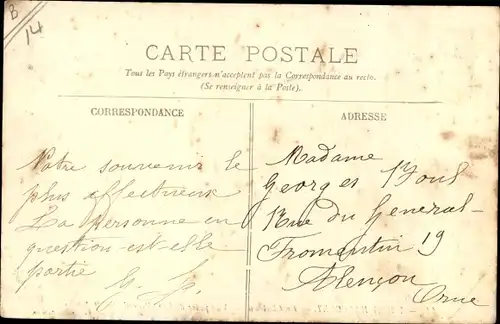 B
14
CARTE POSTALE
Tous les Pays étrangers n'acceptent pas la Correspondance au recto.
(Se renseigner à la Poste).
CORRESPONDANCE
Votre souvenir le
plus affectueux
La personne en
question est-elle
partie
ADRESSE
Madame
Georges
Rue du General-
Fromentin 19
Alençon
Orne